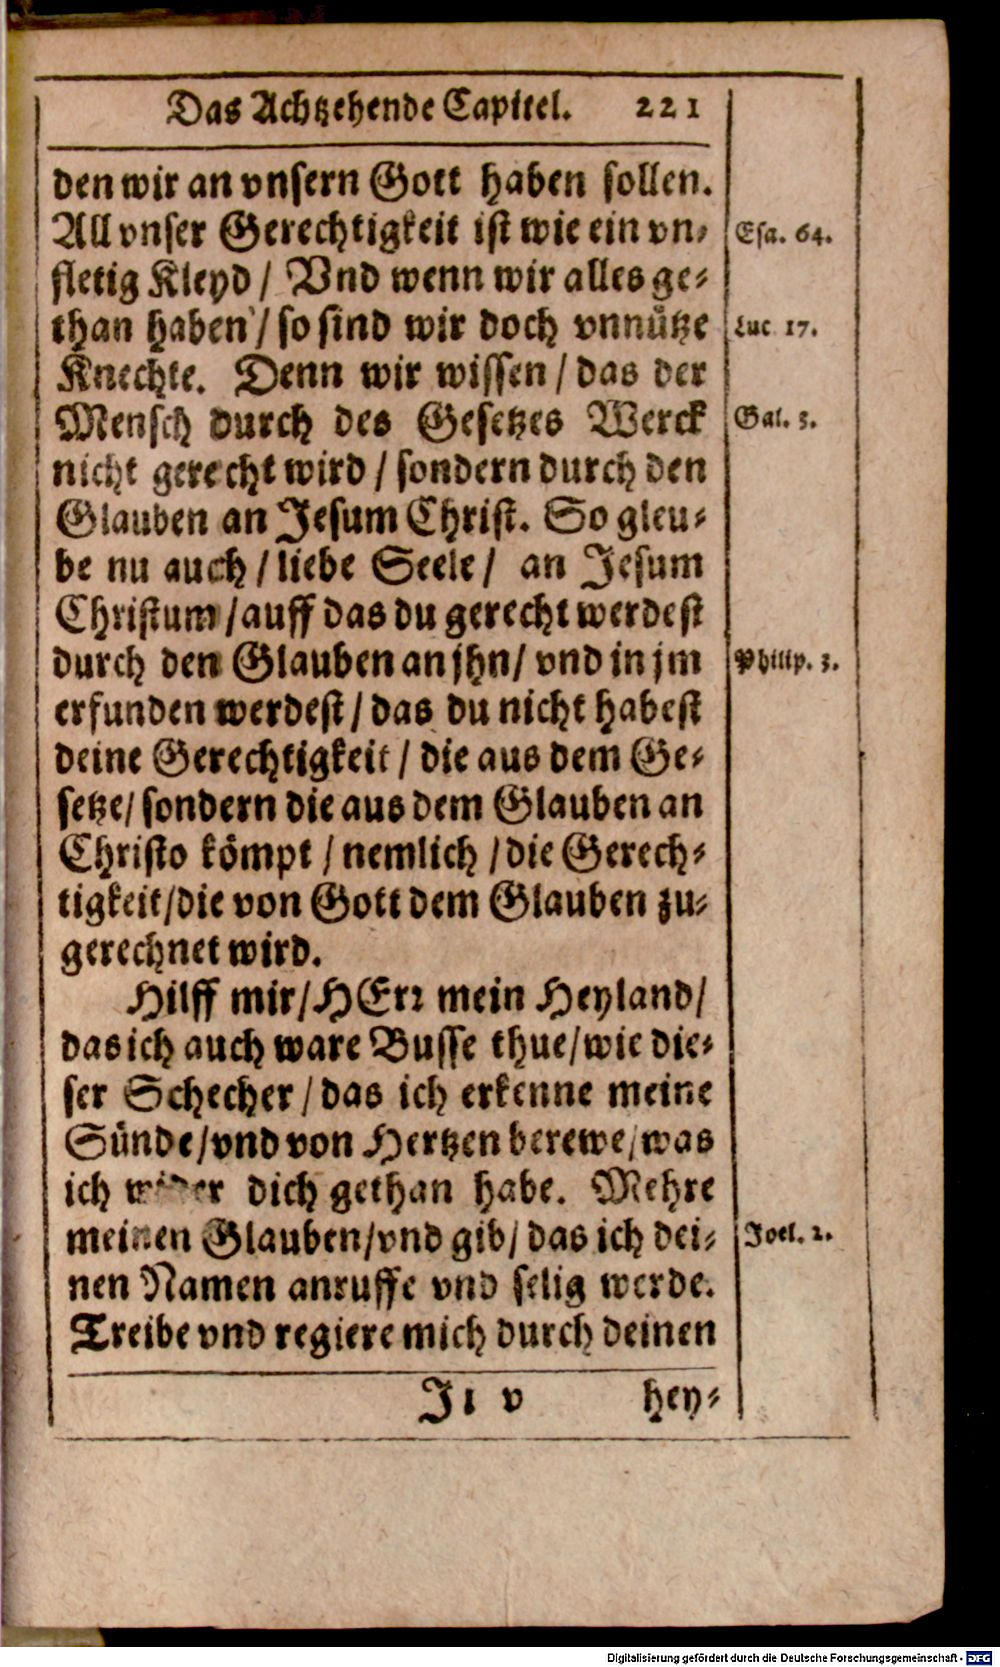 Das Achtzehende Capitel. 221
den wir an vnsern Gott haben sollen.
All vnser Gerechtigkeit ist wie ein vn-
Esa. 64.
fletig Kleyd / Vnd wenn wir alles ge-
than haben / so sind wir doch vnnütze
Luc 17.
Knechte. Denn wir wissen / das der
Mensch durch des Gesetzes Werck
Gal. 3.
nicht gerecht wird / sondern durch den
Glauben an Jesum Christ. So gleu-
be nu auch / liebe Seele / an Jesum
Christum / auff das du gerecht werdest
durch den Glauben an jhn / vnd in jm
Philip. 3.
erfunden werdest / das du nicht habest
deine Gerechtigkeit / die aus dem Ge-
setze / sondern die aus dem Glauben an
Christo kömpt / nemlich / die Gerech-
tigkeit / die von Gott dem Glauben zu-
gerechnet wird.
Hilff mir / HErr mein Heyland /
das ich auch ware Busse thue / wie die-
ser Schecher / das ich erkenne meine
Sünde / vnd von Hertzen berewe / was
ich wider dich gethan habe. Mehre
meinen Glauben / vnd gib / das ich dei-
Joel. 2.
nen Namen anruffe vnd selig werde.
Treibe vnd regiere mich durch deinen
Ii v hey-
Digitalisierung gefördert durch die Deutsche Forschungsgemeinschaft - DFG